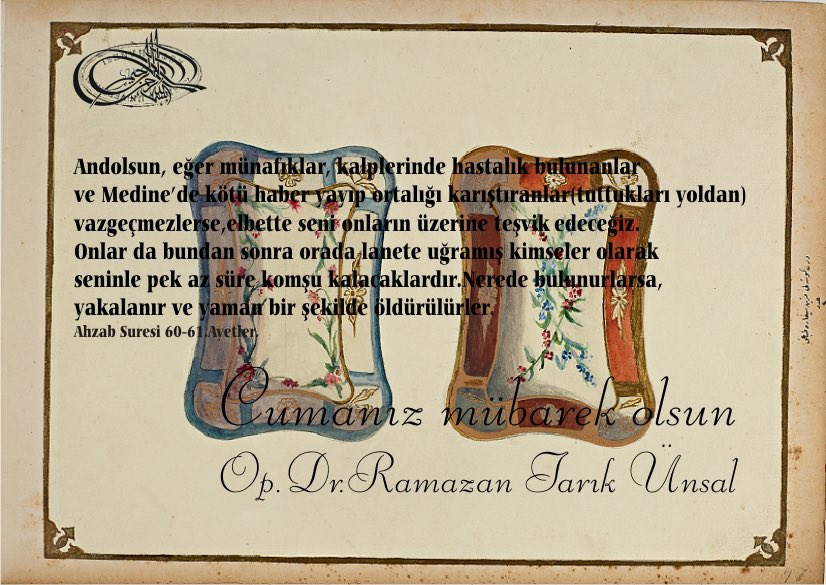 Andolsun, eğer münafıklar, kalplerinde hastalık bulunanlar
ve Medine’de kötü haber yayıp ortalığı karıştıranlar(tuttukları yoldan)
vazgeçmezlerse,elbette seni onların üzerine teşvik edeceğiz.
Onlar da bundan sonra orada lanete uğramış kimseler olarak
seninle pek az süre komşu kalacaklardır.Nerede bulunurlarsa,
yakalanır ve yaman bir şekilde öldürülürler.
Ahzab Suresi 60-61.Ayetler.
Cumanız mübarek olsun
Op.Dr.Ramazan Tarık Ünsal